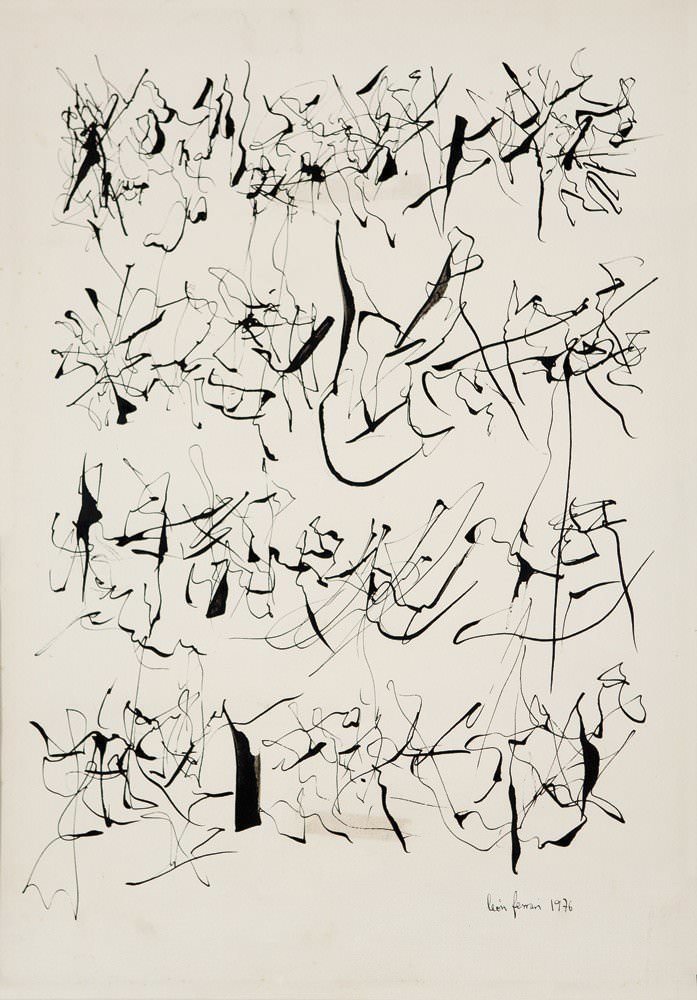 león ferrari 1976